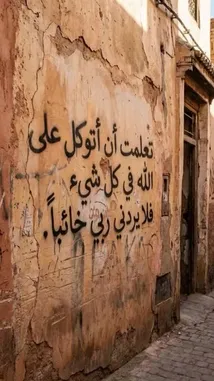 تعلمت أن أتوكل على
الله في كل شيء
فلا يردني ربي خائباً.